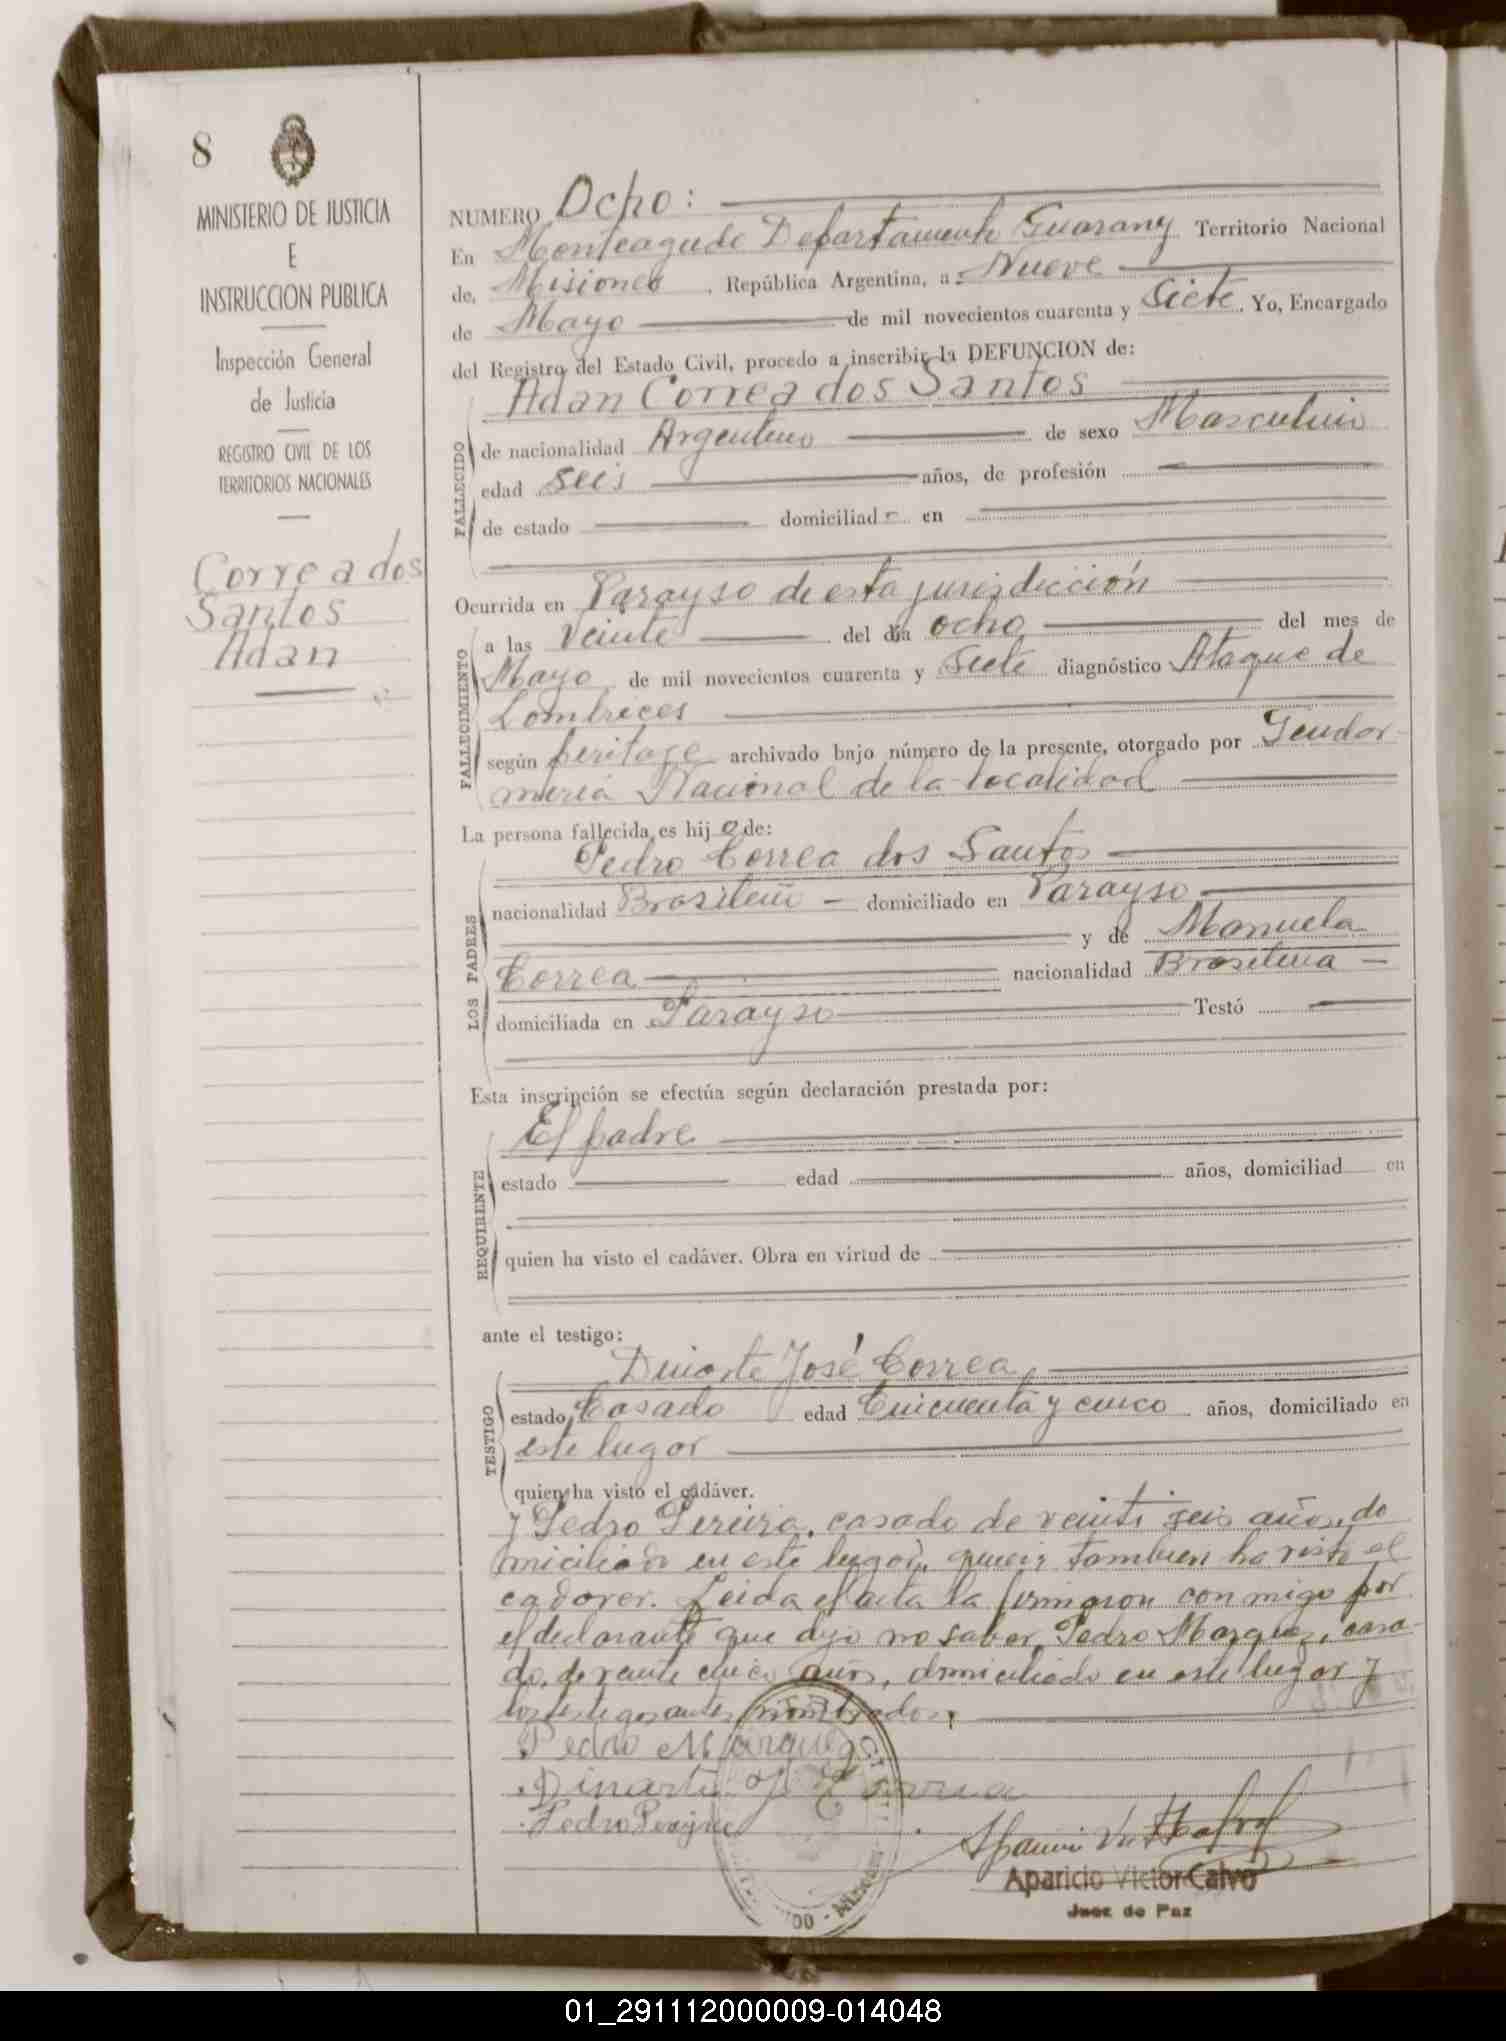 8
MINISTERIO DE JUSTICIA
E
INSTRUCCION PUBLICA
Inspección General
de Justicia
REGISTRO CIVIL DE LOS
TERRITORIOS NACIONALES
Correa dos
Santos
Adan
NUMERO Ocho:
En Monteagudo Departamento Guarany Territorio Nacional
de, Misiones, República Argentina, a Nueve
de Mayo de mil novecientos cuarenta y Siete. Yo, Encargado
del Registro del Estado Civil, procedo a inscribir la DEFUNCION de:
Adan Correa dos Santos
FALLECIDO
de nacionalidad Argentino de sexo Masculino
edad seis años, de profesión
de estado domiciliad en
Ocurrida en Parayso de esta jurisdicción
FALLECIMIENTO
a las Veinte del día ocho del mes de
Mayo de mil novecientos cuarenta y Siete diagnóstico Ataque de
Lombrices
según peritage archivado bajo número de la presente, otorgado por Gendar
meria Nacional de la localidad
La persona fallecida es hijo de:
LOS PADRES
Pedro Correa dos Santos
nacionalidad Brasileño domiciliado en Parayso
y de Manuela
Correa nacionalidad Brasileña
domiciliada en Parayso Testó
Esta inscripción se efectúa según declaración prestada por:
REQUIRENTE
El padre
estado edad años, domiciliad en
quien ha visto el cadáver. Obra en virtud de
ante el testigo:
TESTIGO
Duiarte José Correa,
estado Casado edad Cincuenta y cinco años, domiciliado en
este lugar
quien ha visto el cadáver.
y Pedro Pereira, casado de veinti seis años, do
miciliado en este lugar, quien tambien ha visto el
cadaver. Leida el acta la firmaron conmigo por
el declarante que dijo no saber, Pedro Marquez, casa-
do, de veinte cinco años, domiciliado en este lugar y
los testigos antes nombrados.
Pedro Marquez
Dinarte J Correa
Pedro
Aparicio Victor Calvo
Juez de Paz
01_291112000009-014048